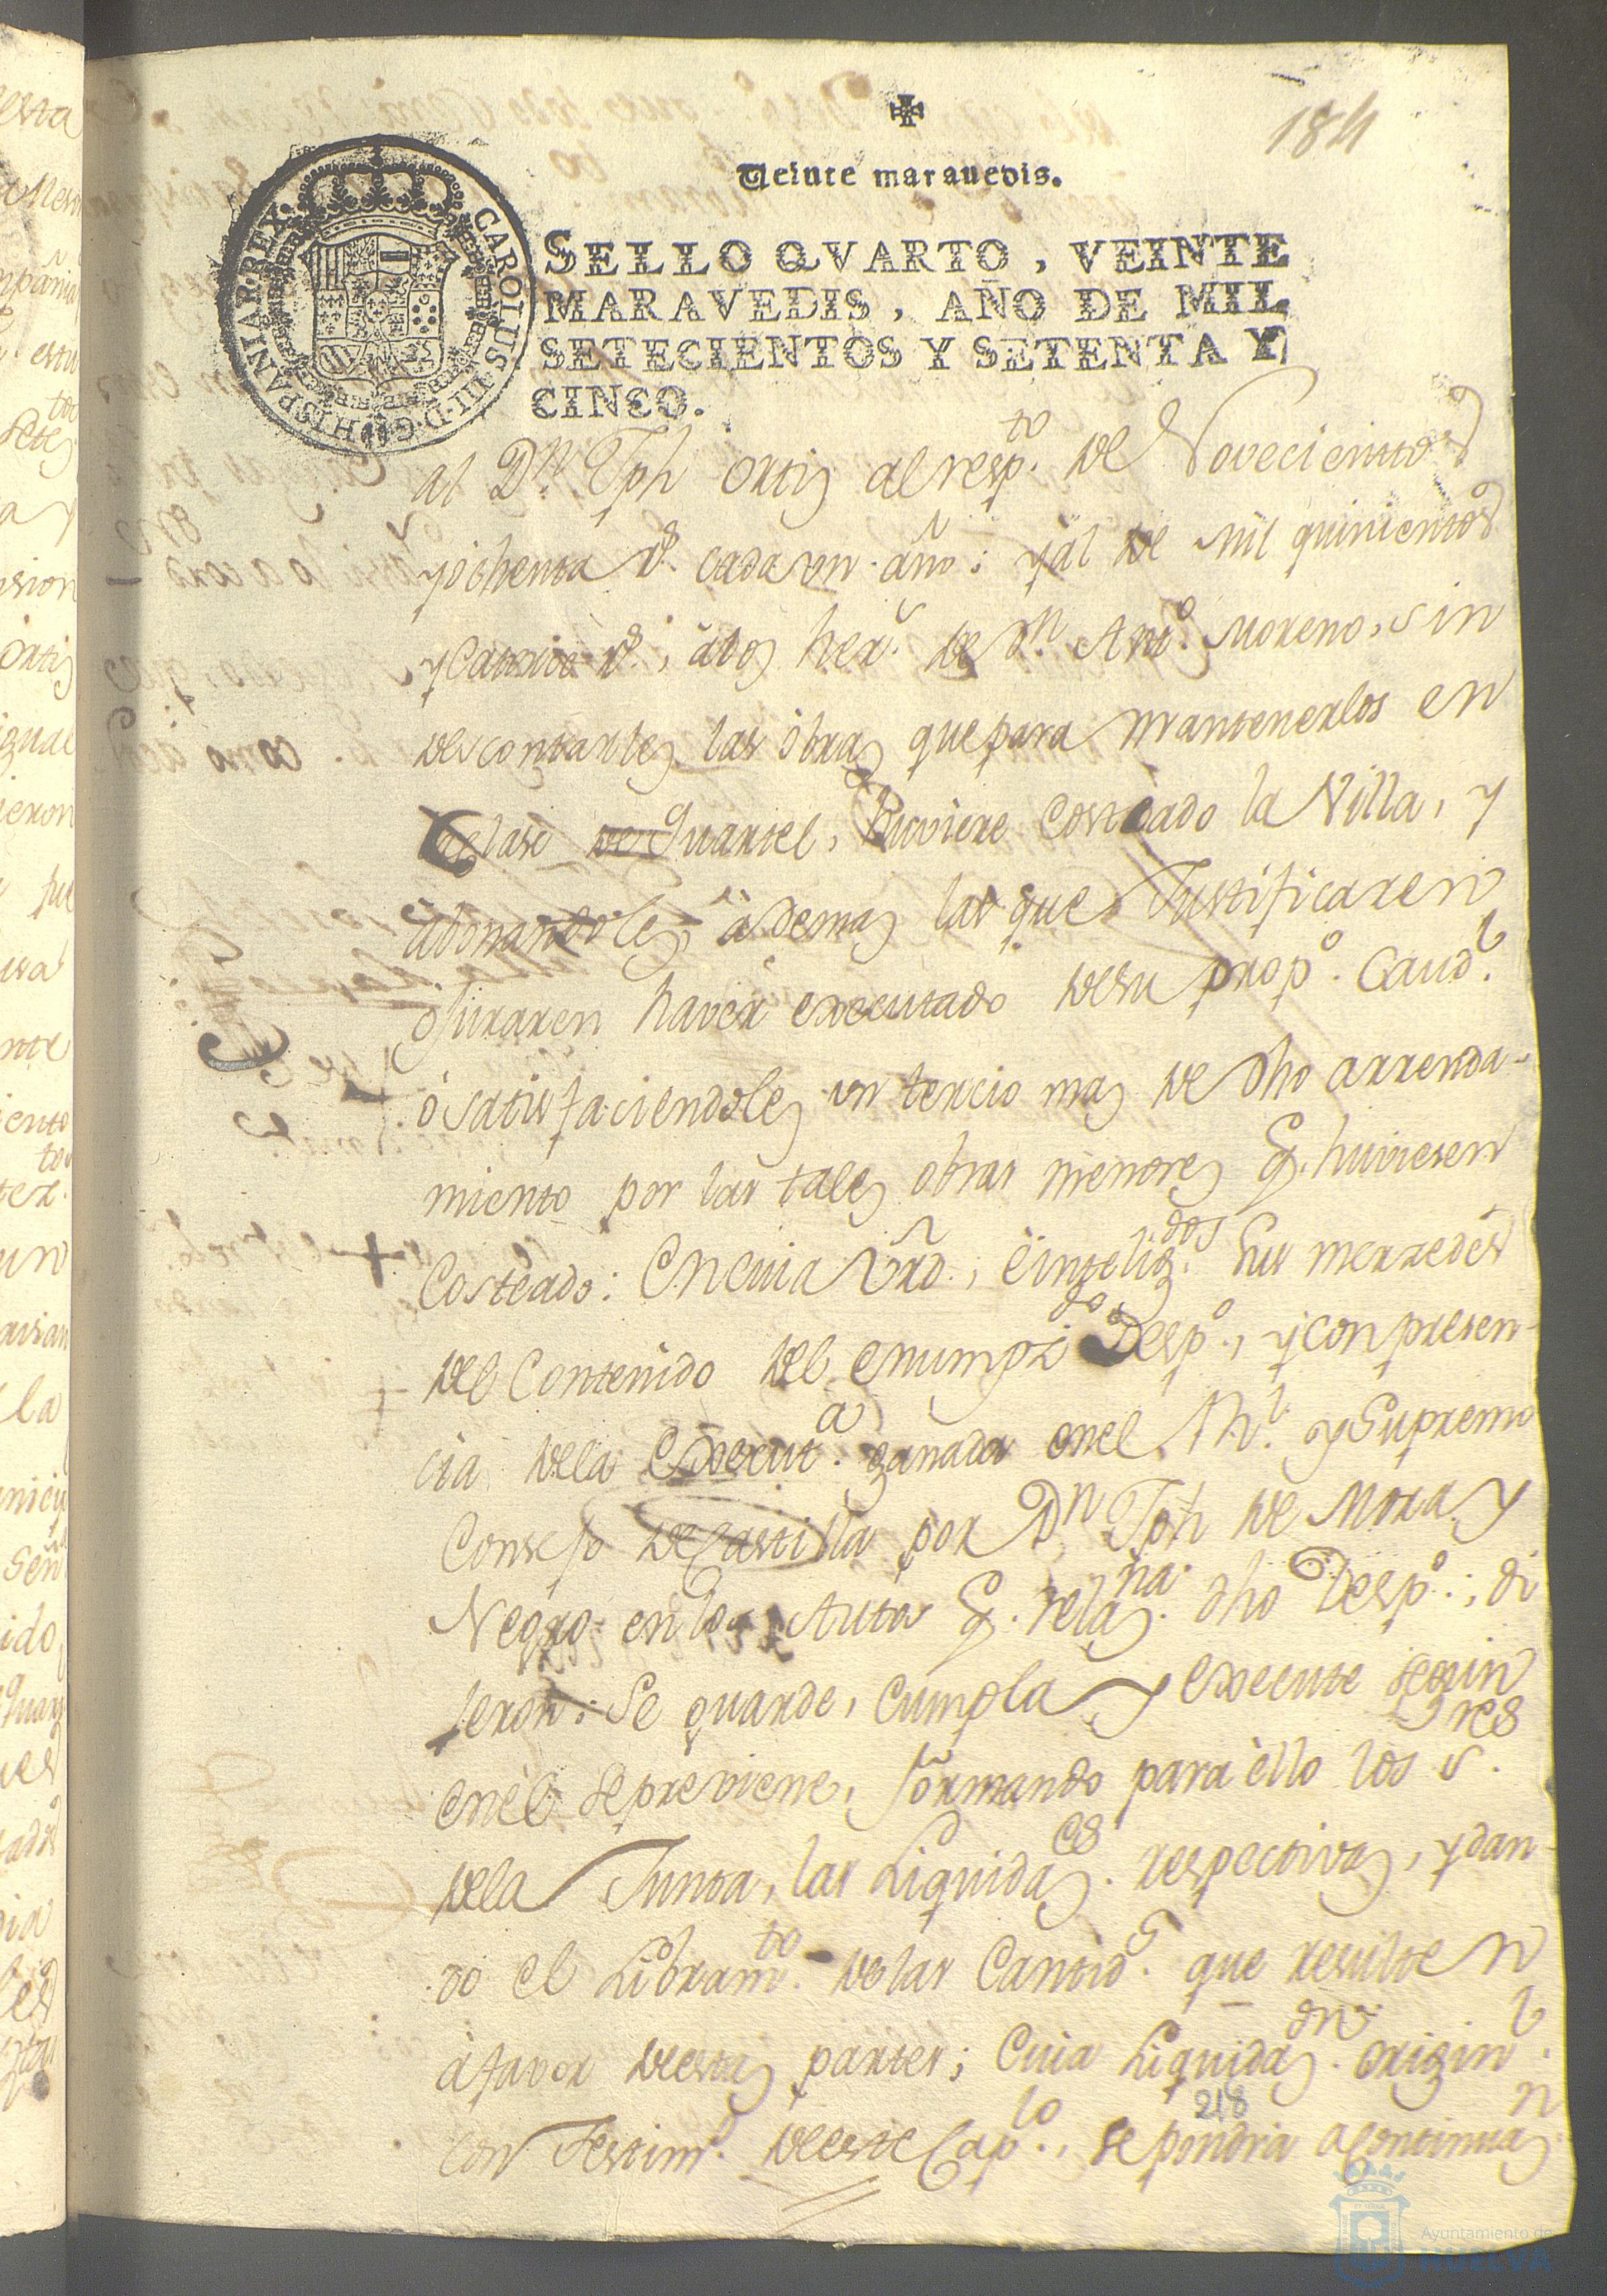 184
Veinte maravedis.
CAROLUS·III·D·G·HISPANIAR·REX·
SELLO QVARTO, VEINTE
MARAVEDIS, AÑO DE MIL
SETECIENTOS Y SETENTA Y
CINCO.
al Dn. Jph Ortiz al respto. de Novecientos
y ochenta rs. cada un año: y al de mil quinientos
y Catorce rs., a los her.s de Dn. Anto. Moreno, sin
descontarles las obras que para mantenerlos en
clase de Quartel, huviere Costeado la Villa, y
abonandoles, ademas las que Justificaren
o juraren haver executado de su propo. Caudl.
ó satisfaciendoles un tercio mas de dho arrenda-
miento por las tales obras menores q. huviesen
Costeado: En cuia vrd., é inteligdos. Sus merzedes
del Contenido del enumpzdo Despo., y con presen-
cia de la Executa. ganada en el Rl. y Supremo
Consejo de Castilla por Dn Jph de Mora y
Negro en los Autos q. relazna. dho Despo.; di
jeron: Se guarde, cumpla y execute segun
en él se previene, formando para éllo los Sres.
de la Junta, las Liquidazes. respectivas, y dan-
do el Libramto. de las Cantids. que resulten
à favor de estas partes; Cuia Liquidazon. originl.
con Testimo. de este Caplo., se pondrà a continuazn.
218
Ayuntamiento de
HUELVA